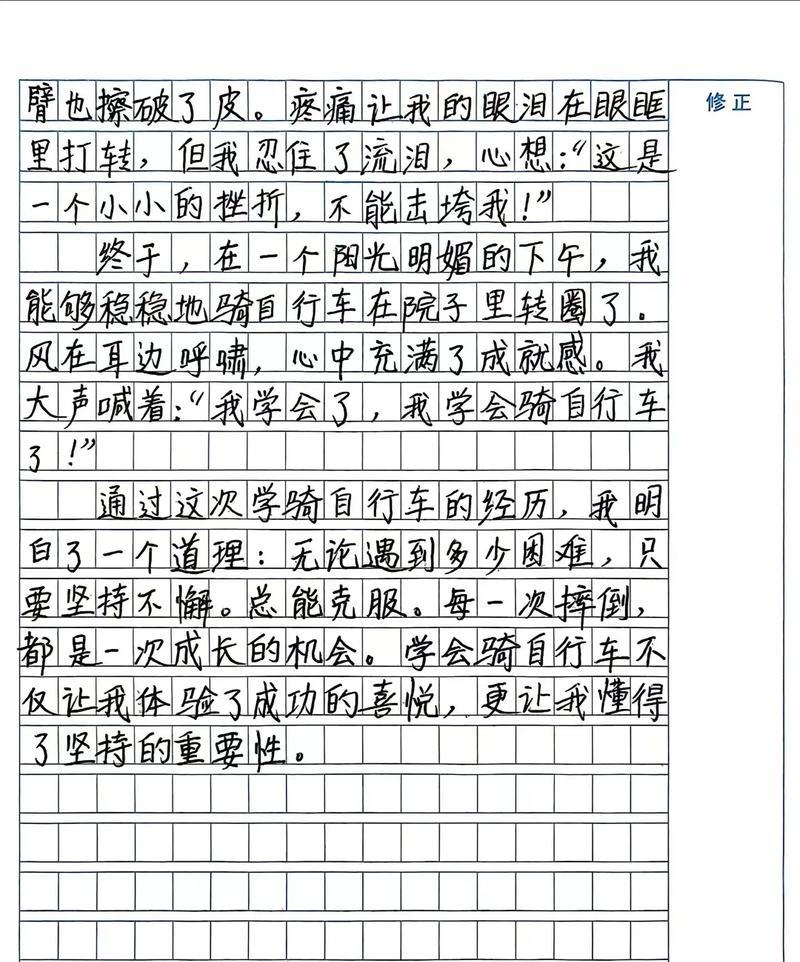 臂也擦破了皮。疼痛让我的眼泪在眼眶
修正
里打转，但我忍住了流泪，心想：“这是
一个小小的挫折，不能击垮我！”
终于，在一个阳光明媚的下午，我
能够稳稳地骑自行车在院子里转圈了。
风在耳边呼啸，心中充满了成就感。我
大声喊着：“我学会了，我学会骑自行车
了！”
通过这次学骑自行车的经历，我明
白了一个道理：无论遇到多少困难，只
要坚持不懈。总能克服。每一次摔倒，
都是一次成长的机会。学会骑自行车不
仅让我体验了成功的喜悦，更让我懂得
了坚持的重要性。